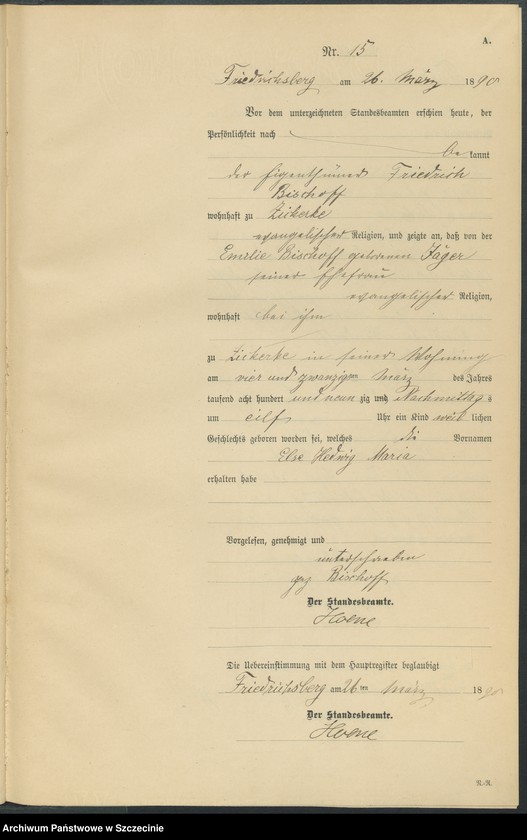 A.
Nr. 15
Friedrichsberg am 26. März 1890
Vor dem unterzeichneten Standesbeamten erschien heute, der
Persönlichkeit nach
be kannt
der Eigenthümer Friedrich
Bischoff
wohnhaft zu Zickerke
evangelischer Religion, und zeigte an, daß von der
Emilie Bischoff geborenen Jäger
seiner Ehefrau
evangelischer Religion,
wohnhaft bei ihm
zu Zickerke in seiner Wohnung
am vier und zwanzigten März des Jahres
tausend acht hundert und neun zig und Nachmittags
um eilf Uhr ein Kind weib lichen
Geschlechts geboren worden sei, welches die Vornamen
Else Hedwig Maria
erhalten habe
Vorgelesen, genehmigt und
unterschrieben
gez Bischoff
Der Standesbeamte.
Hoene
Die Uebereinstimmung mit dem Hauptregister beglaubigt
Friedrichsberg am 26ten März 1890
Der Standesbeamte.
Hoene
N.-R.
Archiwum Państwowe w Szczecinie